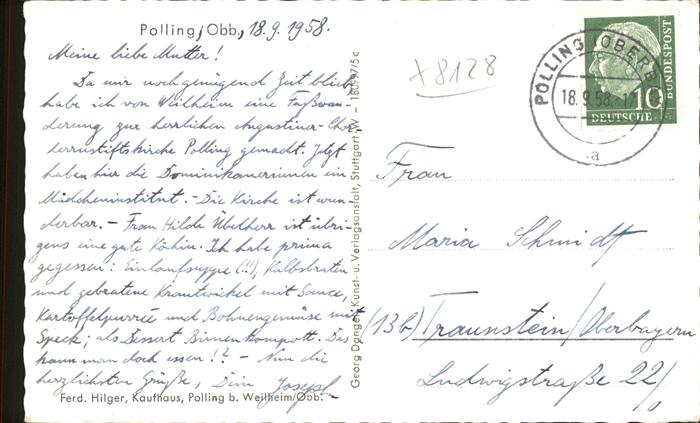 Polling/Obb., 18.9.1958.
Meine liebe Mutter!
Da mir noch genügend Zeit blieb,
habe ich von Weilheim eine Fußwan-
derung zur herrlichen Augustiner-Chor-
herrnstiftskirche Polling gemacht. Jetzt
haben hier die Dominikanerinnen ein
Mädcheninstitut. - Die Kirche ist wun-
derbar. - Frau Hilde Überherr ist übri-
gens eine gute Köchin. Ich habe prima
gegessen: Einlaufsuppe (!!), Kalbsbraten
und gebratene Krautwickel mit Sauce,
Kartoffelpurrée und Bohnengemüse mit
Speck; als Dessert Birnenkompott. Das
kann man doch essen!? - Nun die
herzlichsten Grüße, Dein Josef
Ferd. Hilger, Kaufhaus, Polling b. Weilheim/Obb.
Kunst- u. Verlagsanstalt, Stuttgart-W - 18099/5c
+8128
POLLING (OBERB)
18.9.58.-17
a
10
DEUTSCHE
BUNDESPOST
Frau
Maria Schmidt
(13b) Traunstein/Oberbayern
Ludwigstraße 22/0